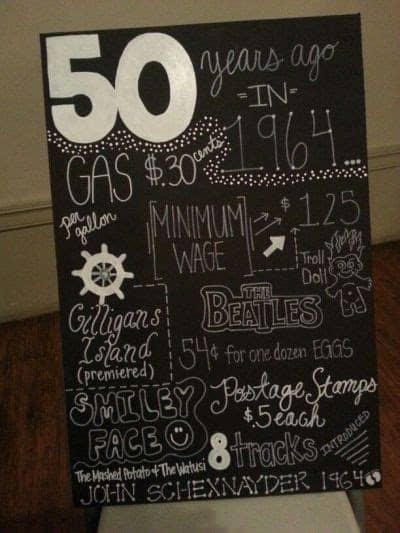 50 years ago
=IN=
1964...
GAS $.30 cents
per gallon
[MINIMUM WAGE] $1.25
Troll Doll
Gilligans Island
(premiered)
THE BEATLES
54¢ for one dozen EGGS
SMILEY FACE
Postage Stamps
$.5 each
8 tracks INTRODUCED
The Mashed Potato & The Watusi
JOHN SCHEXNAYDER 1964